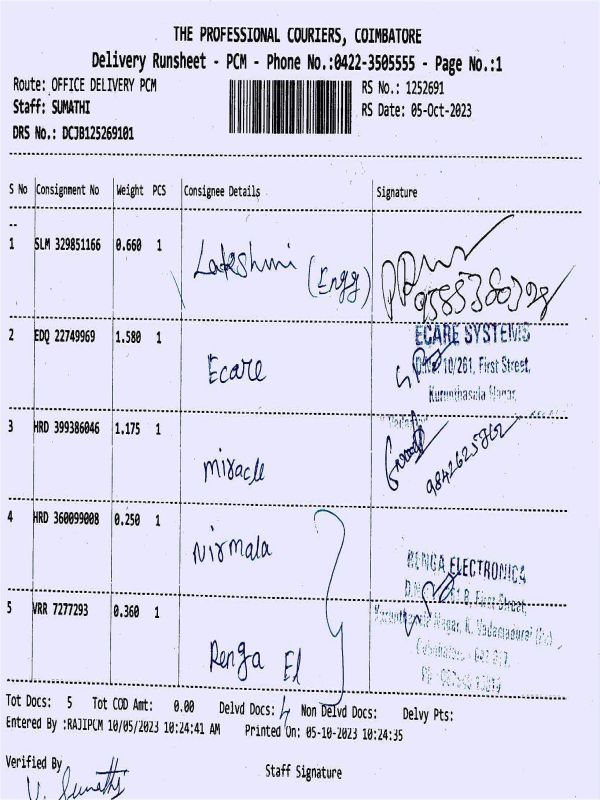 THE PROFESSIONAL COURIERS, COIMBATORE
Delivery Runsheet - PCM - Phone No.:0422-3505555 - Page No.:1
Route: OFFICE DELIVERY PCM RS No.: 1252691
Staff: SUMATHI RS Date: 05-Oct-2023
DRS No.: DCJB125269101
S No Consignment No Weight PCS Consignee Details Signature
--
1 SLM 329851166 0.660 1 Lakshmi (Engg)
2 EDQ 22749969 1.580 1 Ecare
ECARE SYSTEMS
10/261, First Street,
Kurunthasala Nagar,
3 HRD 399386046 1.175 1 miracle
4 HRD 360099008 0.250 1 Nirmala
5 VRR 7277293 0.360 1 Renga El
RENGA ELECTRONICA
First Street,
Nagar, K. Vadamadurai
Tot Docs: 5 Tot COD Amt: 0.00 Delvd Docs: 4 Non Delvd Docs: Delvy Pts:
Entered By :RAJIPCM 10/05/2023 10:24:41 AM Printed On: 05-10-2023 10:24:35
Verified By
Staff Signature
V. Sumathi